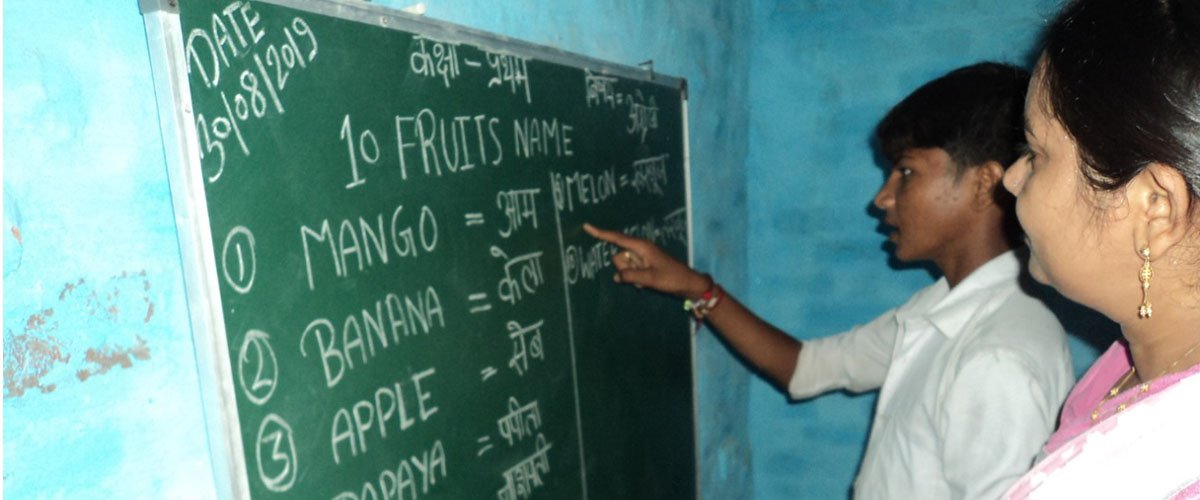 DATE
30/08/2019
कक्षा - प्रथम
विषय = अंग्रेजी
10 FRUITS NAME
1 MANGO = आम
2 BANANA = केला
3 APPLE = सेब
PAPAYA = पपीता
MELON =